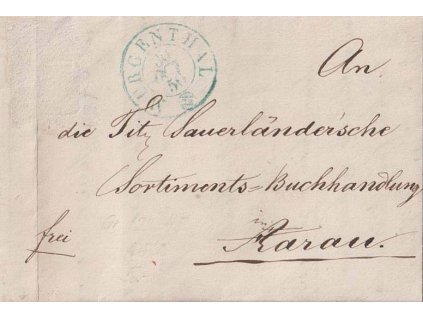 MURGENTHAL
An
die Tit. Sauerländer'sche
Sortiments=Buchhandlung
frei
in
Aarau.